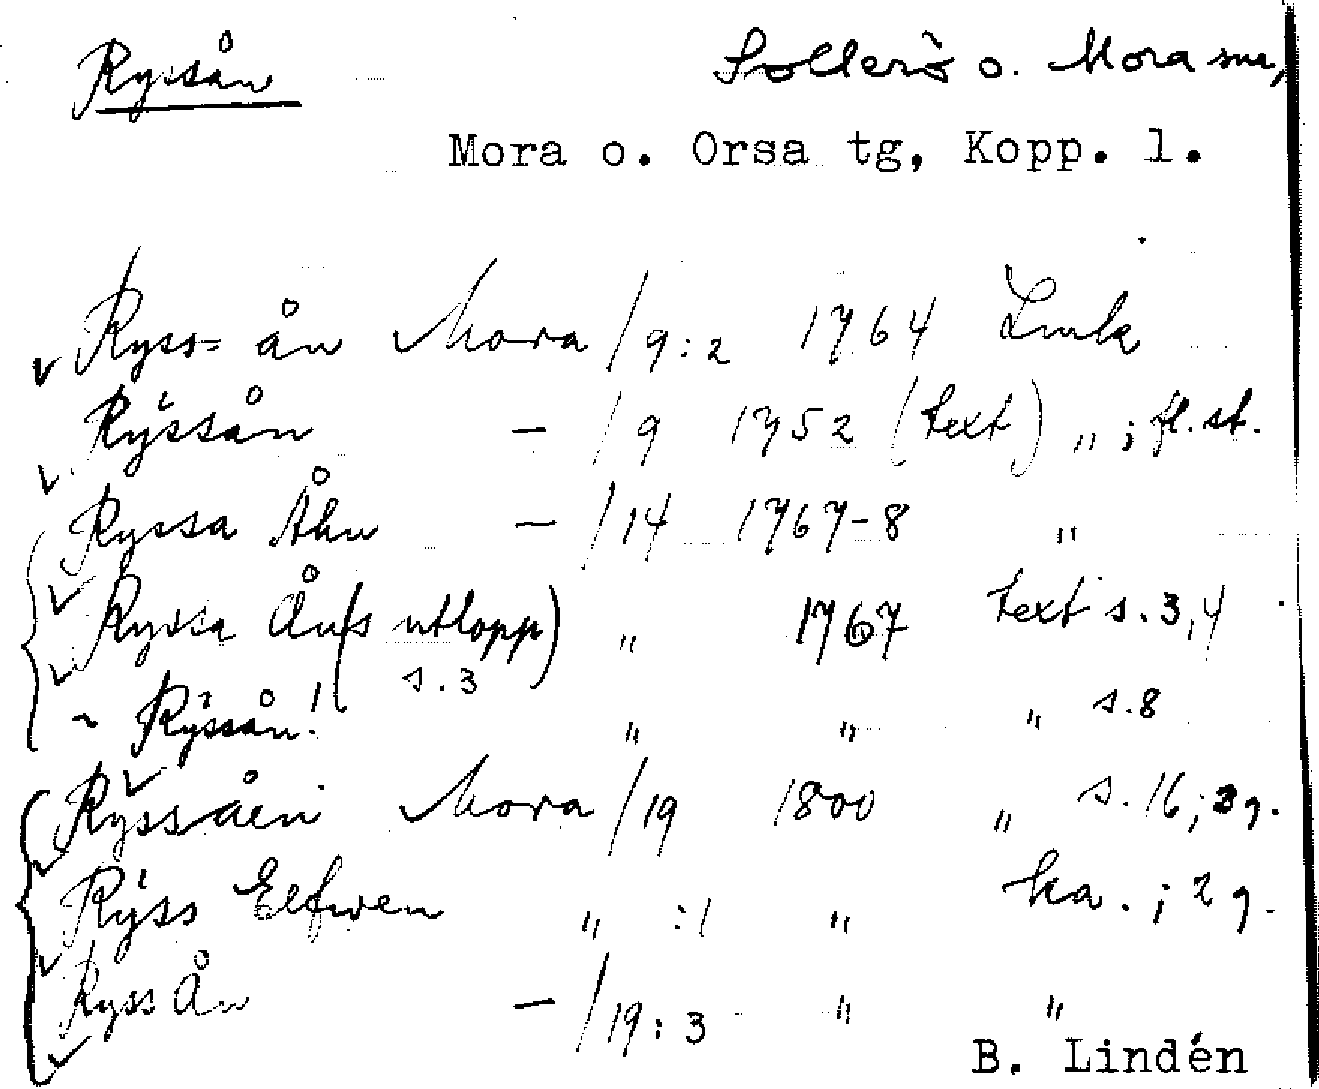 Ryssån Sollerö o. Mora snr,
Mora o. Orsa tg, Kopp. l.
Ryss= ån Mora /9:2 1764 Lmk
Rÿssån — /9 1752 (text) „ ; fl. st.
Ryssa Åhn — /14 1767-8 „
Ryssa Åns (utlopp) „ 1767 text s. 3,4
s. 3
~ Rÿssån! „ „ „ s. 8
Ryssåen Mora /19 1800 „ s. 16; 3 g.
Rÿss Elfwen „ :1 „ ka. ; 2 g.
Ryss Ån — /19:3 „ „
B. Lindén